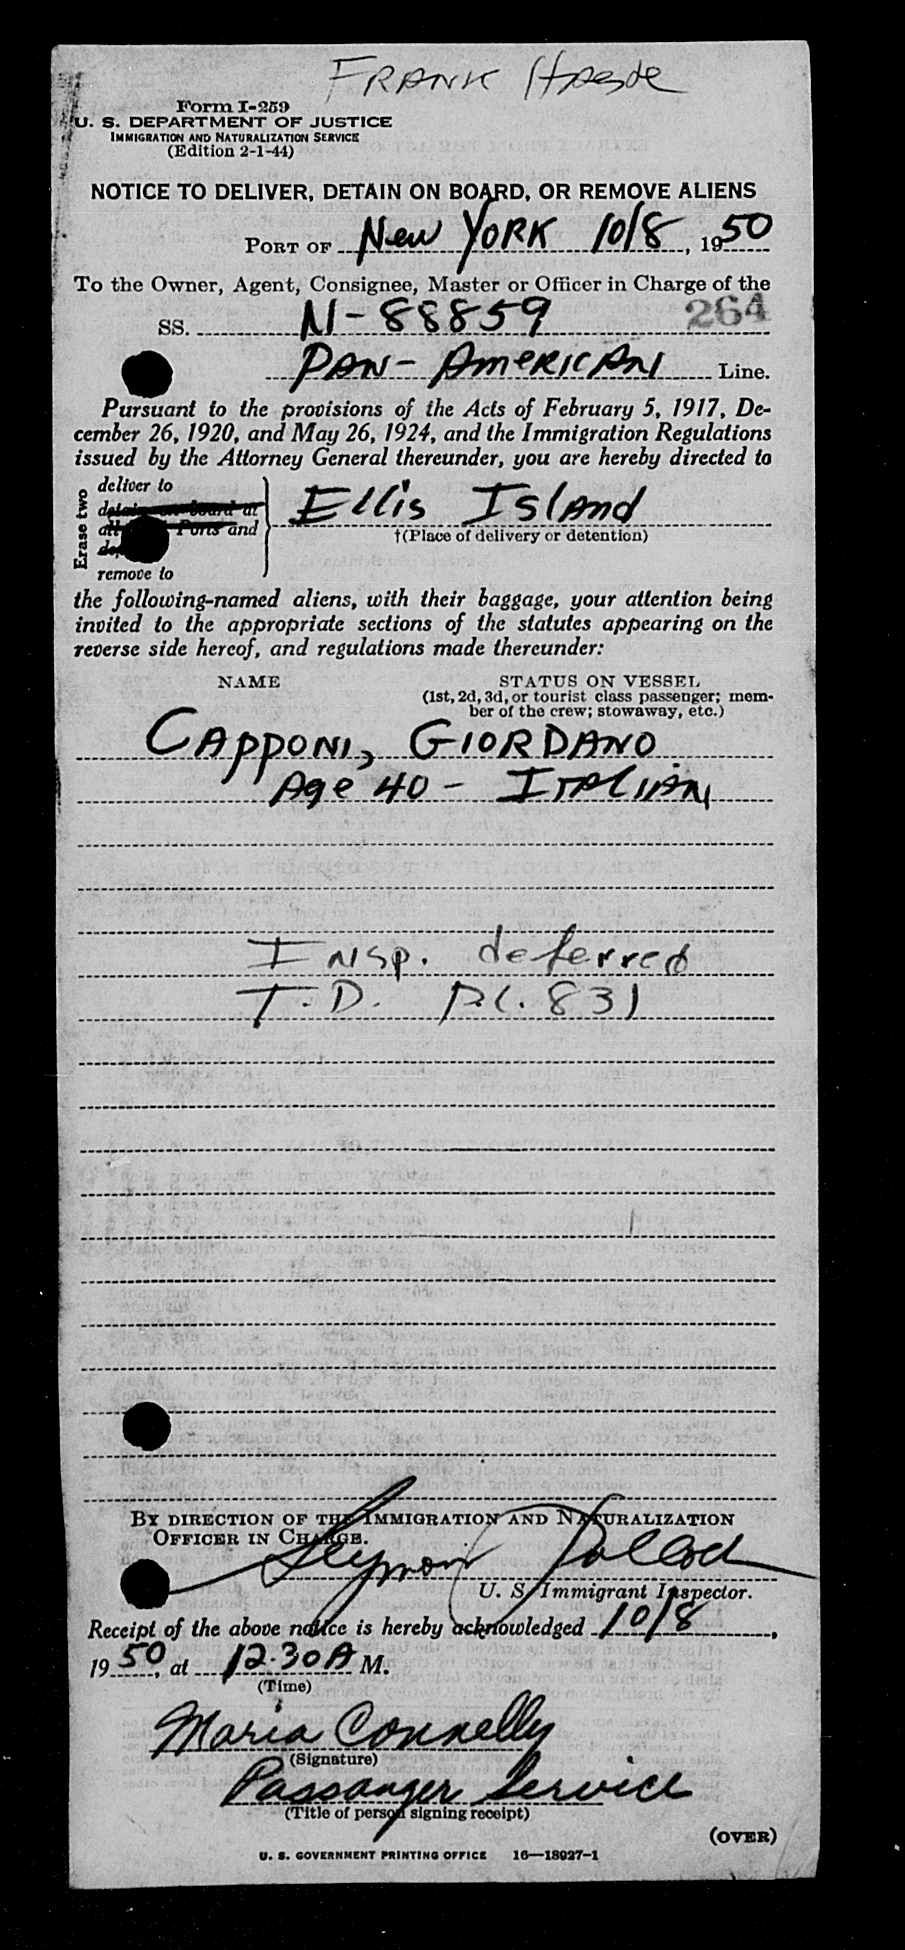 FRANK
Form I-259
U. S. DEPARTMENT OF JUSTICE
IMMIGRATION AND NATURALIZATION SERVICE
(Edition 2-1-44)
NOTICE TO DELIVER, DETAIN ON BOARD, OR REMOVE ALIENS
PORT OF New YORK 10/8, 1950
To the Owner, Agent, Consignee, Master or Officer in Charge of the
SS. N-88859 264
PAN-AMERICAN Line.
Pursuant to the provisions of the Acts of February 5, 1917, De-
cember 26, 1920, and May 26, 1924, and the Immigration Regulations
issued by the Attorney General thereunder, you are hereby directed to
Erase two
deliver to
detain on board at
Ports and
remove to
Ellis Island
†(Place of delivery or detention)
the following-named aliens, with their baggage, your attention being
invited to the appropriate sections of the statutes appearing on the
reverse side hereof, and regulations made thereunder:
NAME STATUS ON VESSEL
(1st, 2d, 3d, or tourist class passenger; mem-
ber of the crew; stowaway, etc.)
CAPPONI, GIORDANO
Age 40 - ITALIAN
Insp. deferred
T.D. Pl. 831
BY DIRECTION OF THE IMMIGRATION AND NATURALIZATION
OFFICER IN CHARGE.
U. S. Immigrant Inspector.
Receipt of the above notice is hereby acknowledged 10/8,
1950, at 12.30 A M.
(Time)
Maria Connelly
(Signature)
Passanger Service
(Title of person signing receipt)
(OVER)
U. S. GOVERNMENT PRINTING OFFICE 16—18927-1